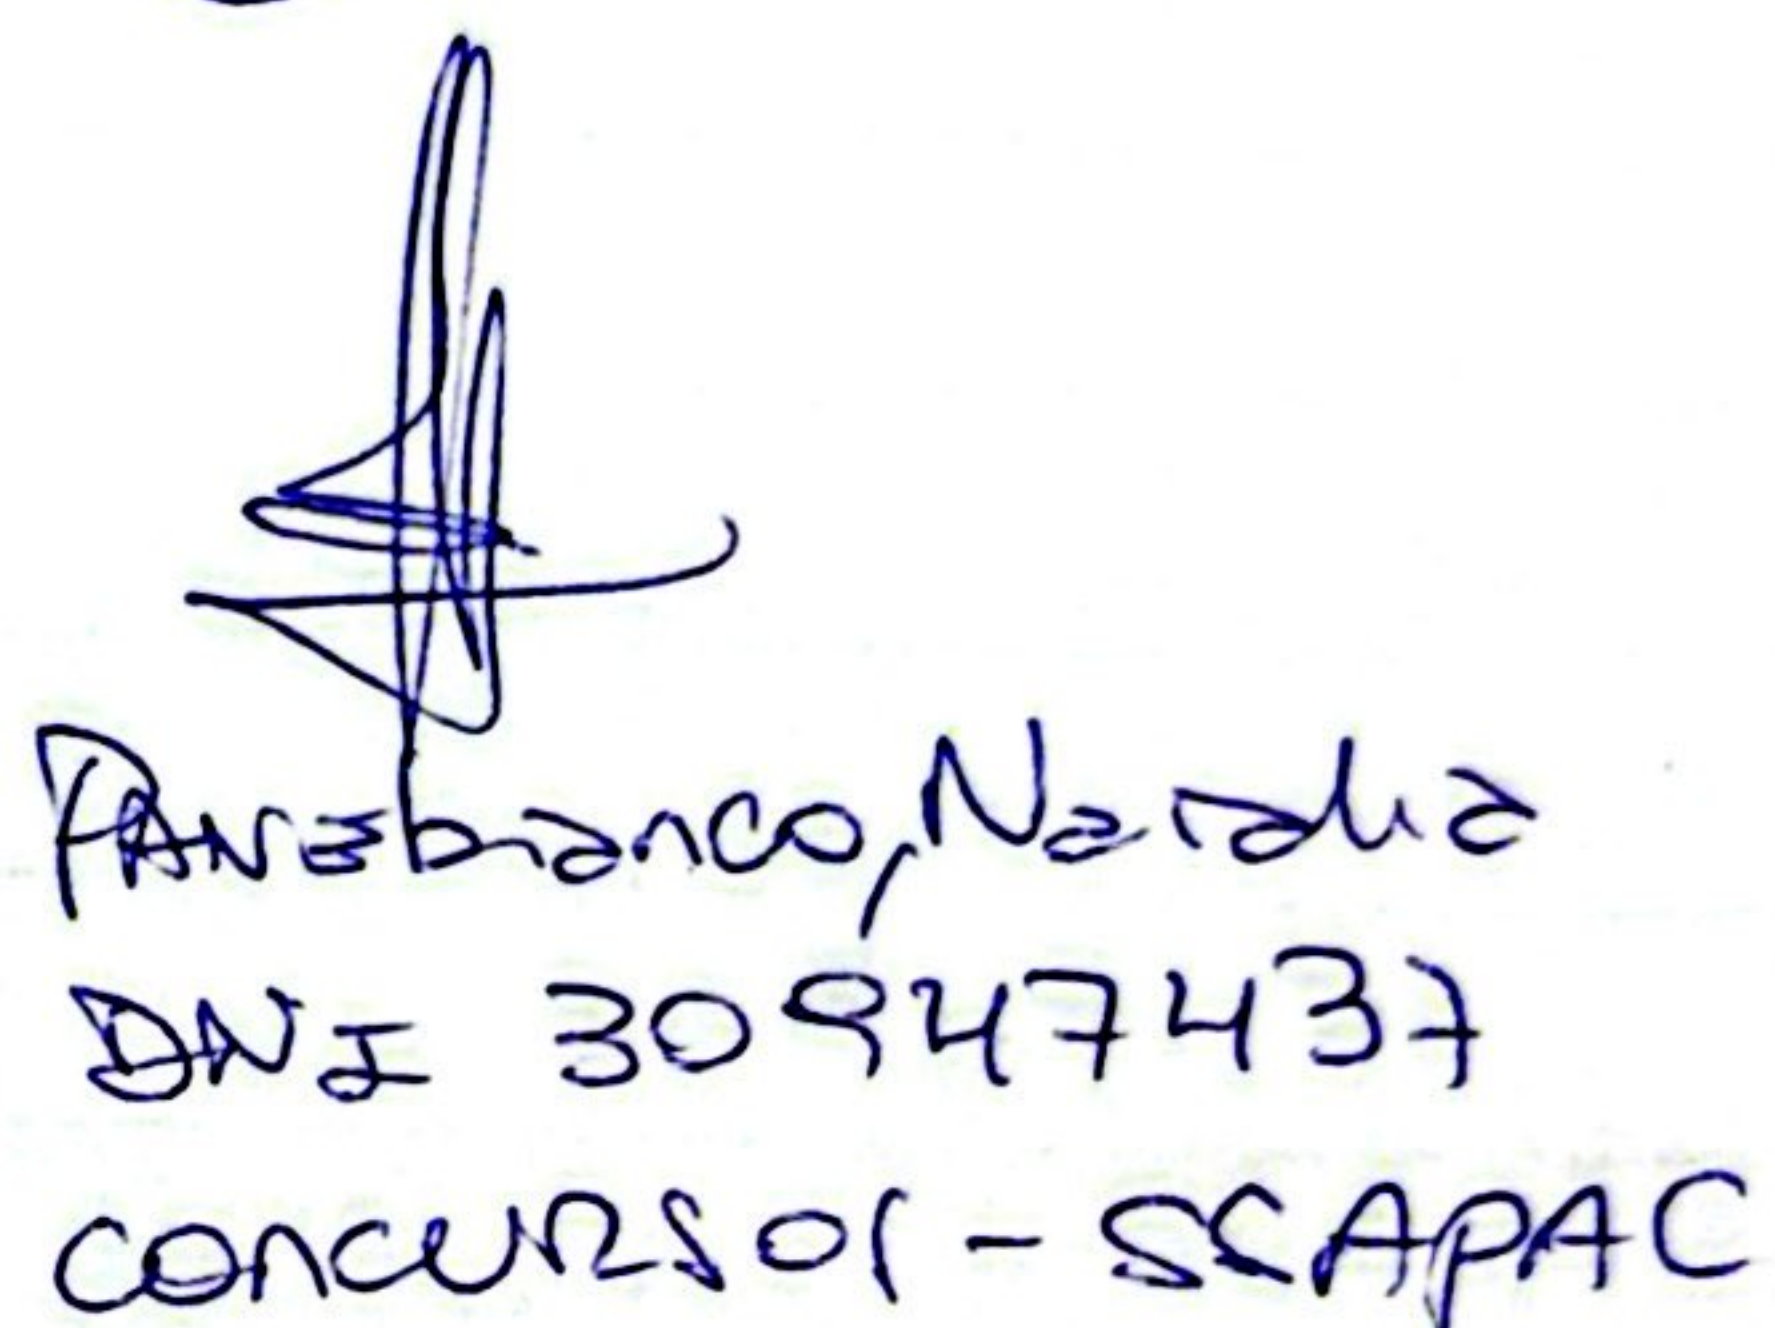 PANEbianco, Natalia
DNI 30947437
CONCURSOS - SSAPAC